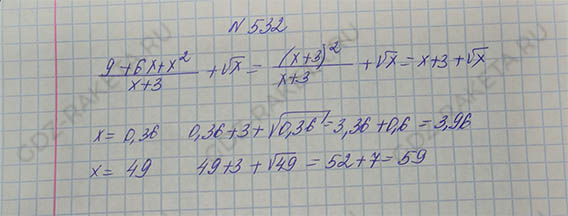 №532
(9+6x+x²)/(x+3) + √x = (x+3)²/(x+3) + √x = x+3+√x
x = 0,36 0,36+3+√0,36 = 3,36+0,6 = 3,96
x = 49 49+3+√49 = 52+7 = 59
GDZ-RAKETA.RU